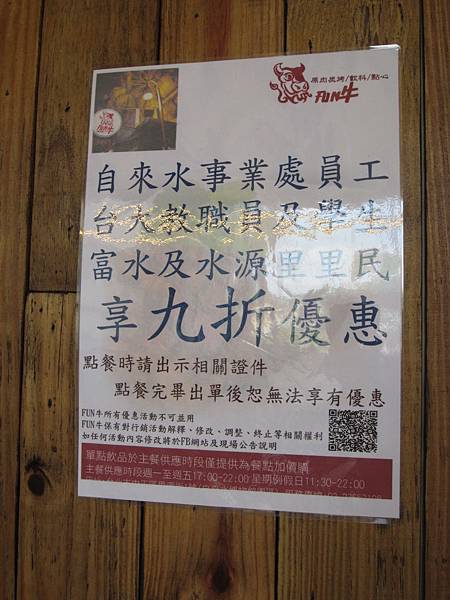 原肉炭烤/飲料/點心
FUN牛
自來水事業處員工
台大教職員及學生
富水及水源里里民
享九折優惠
點餐時請出示相關證件
點餐完畢出單後恕無法享有優惠
FUN牛所有優惠活動不可並用
FUN牛保有對行銷活動解釋、修改、調整、終止等相關權利
如任何活動內容修改將於FB網站及現場公告說明
單點飲品於主餐供應時段僅提供為餐點加價購
主餐供應時段週一至週五17:00-22:00 星期例假日11:30-22:00